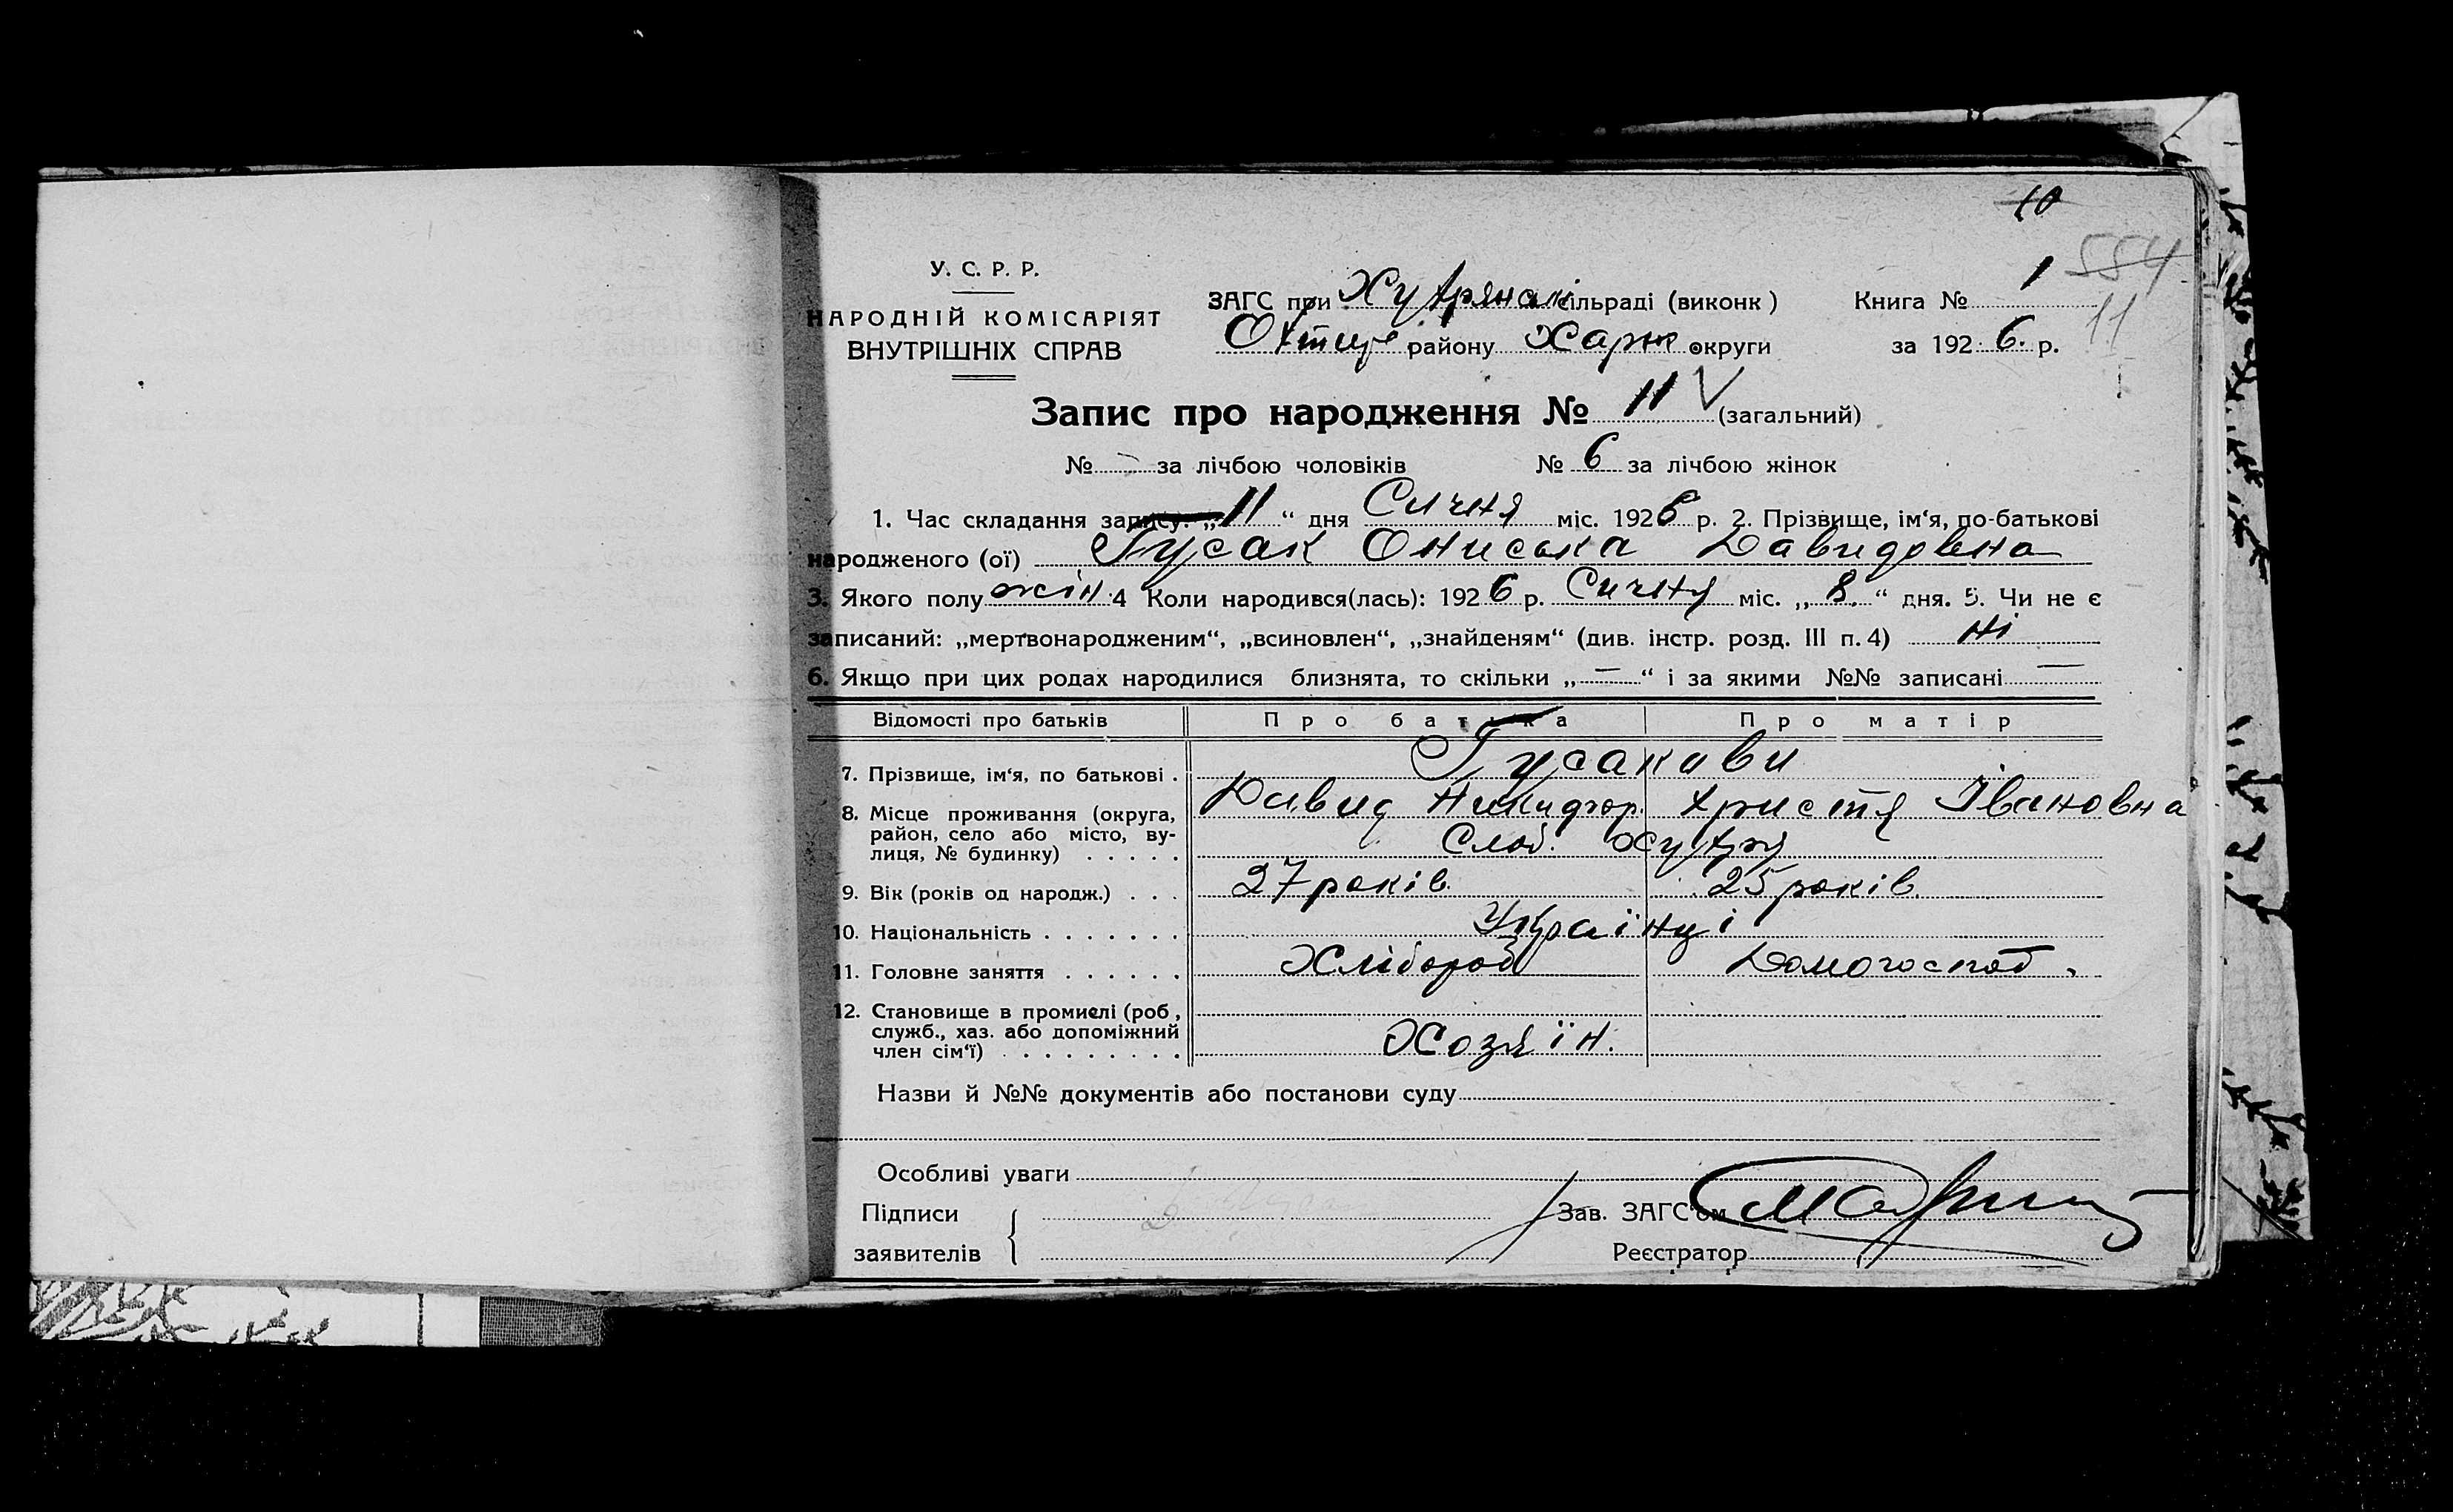 10
У. С. Р. Р.
НАРОДНІЙ КОМІСАРІЯТ
ВНУТРІШНІХ СПРАВ
ЗАГС при сільраді (виконк )
района Харк округи
Книга № 1 554
за 1926. р. 11
Запис про народження № 11 V (загальний)
№ – за лічбою чоловіків № 6 за лічбою жінок
1. Час складання запису: „11“ дня Сичня міс. 1926 р. 2. Прізвище, ім‘я, по-батькові
народженого (ої) Гусак Ониська Давидовна
3. Якого полу жін. 4 Коли народився(лась): 1926 р. Сичня міс. „8.“ дня. 5. Чи не є
записаний: „мертвонародженим“, „всиновлен“, „знайденям“ (див. інстр. розд. III п. 4) ні
6. Якщо при цих родах народилися близнята, то скільки „—“ і за якими №№ записані —
Відомості про батьків Про батька Про матір
7. Прізвище, ім‘я, по батькові . Гусакови
Давид Никифор. Христя Івановна
8. Місце проживання (округа,
район, село або місто, ву-
лиця, № будинку) . . . . . Слоб.
9. Вік (років од народж.) . . . 27 років. 25 років.
10. Національність . . . . . . . Українці
11. Головне заняття . . . . . . Хлібороб Домогоспод.
12. Становище в промислі (роб ,
служб., хаз. або допоміжний
член сім‘ї) . . . . . . . . . Хозяїн.
Назви й №№ документів або постанови суду
Особливі уваги
Підписи
заявителів
Зав. ЗАГС‘ом
Реєстратор